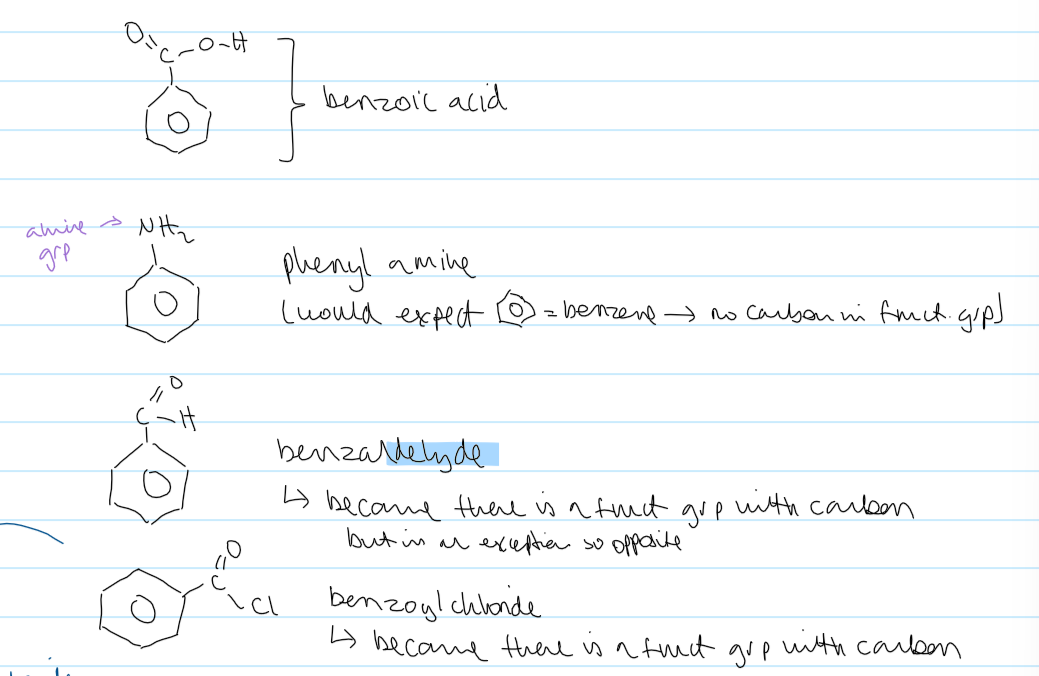 O
C-O-H
benzoic acid
amine → NH2
grp
phenyl amine
(would expect = benzene → no carbon in funct. grp)
O
C-H
benzaldelyde
↳ because there is a funct grp with carbon
but is an exception so opposite
O
C
Cl
benzoyl chloride
↳ because there is a funct grp with carbon